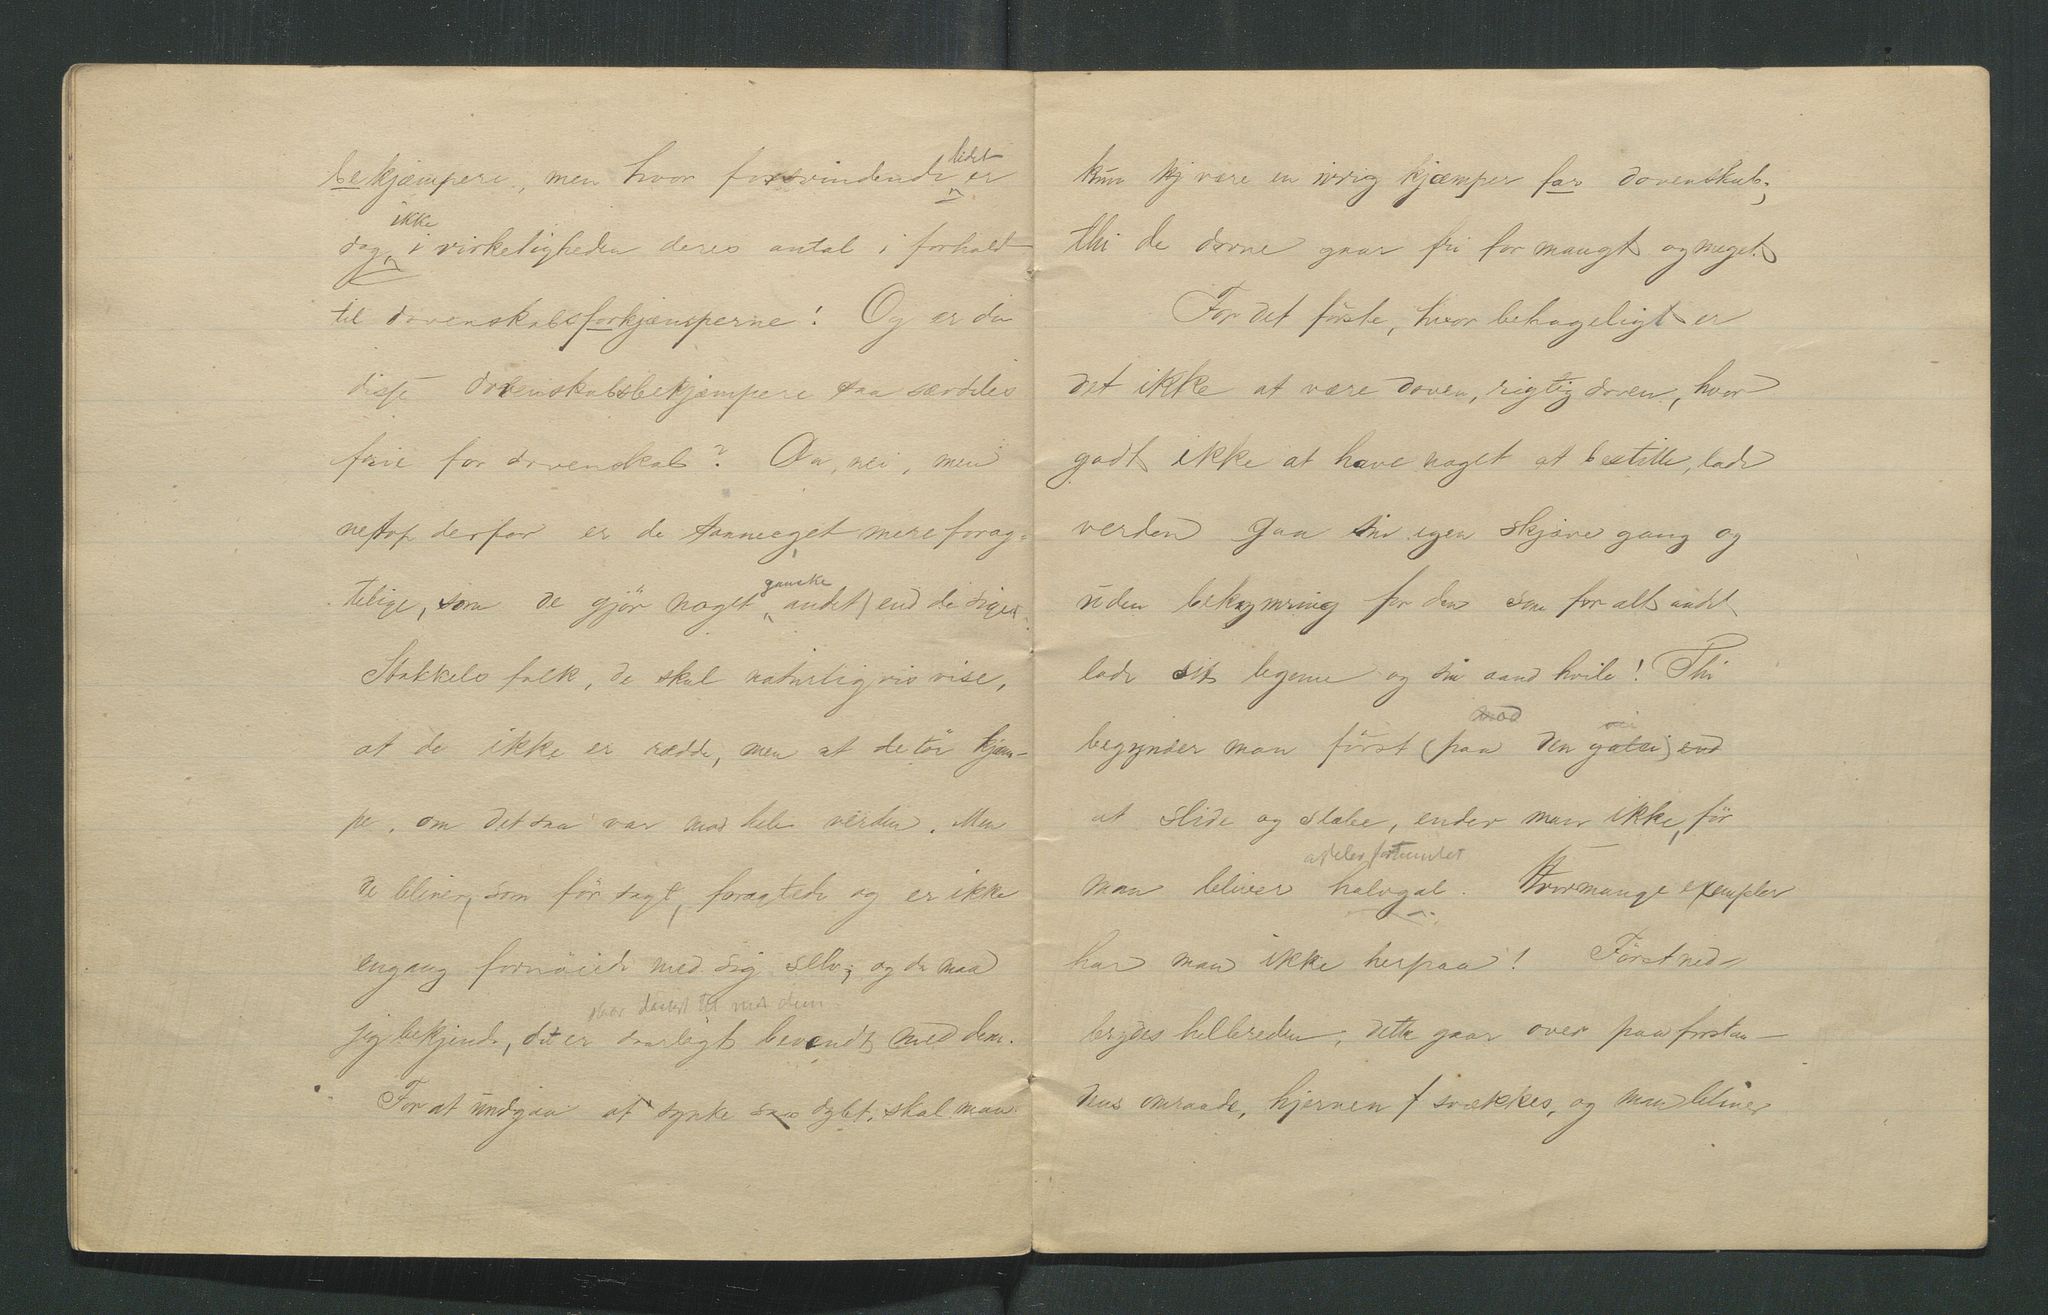 bekjæmpere, men hvor forsvindende lidet er
dog ikke i virkeligheden deres antal i forhold
til dovenskabsforkjæmperne! Og er da
disse dovenskabsbekjæmpere saa særdeles
frie for dovenskab? Aa, nei, men
netop derfor er de saameget mere forag-
telige, som de gjør noget ganske andet end de siger.
Stakkels folk, de skal naturligvis vise,
at de ikke er rædde, men at de tør kjæm-
pe, om det saa var mod hele verden. Men
de bliver, som før sagt, foragtede og er ikke
engang fornøiede med sig selv; og da maa
staar daarligt til med dem
jeg bekjende, det er daarligt bevendt med dem.
For at undgaa at synke saa dybt, skal man
kun være en ivrig kjæmper for dovenskab;
thi de dovne gaar fri for mangt og meget.
For det første, hvor behageligt er
det ikke at være doven, rigtig doven, hvor
godt ikke at have noget at bestille, lade
verden gaa sin egen skjæve gang og
uden bekymring for den som for alt andet
lade sit legeme og sin aand hvile! Thi
mod
begynder man først (paa den galei) end
at slide og slæbe, ender man ikke, før
man bliver halvgal. Hvormange exempler
har man ikke herpaa! Først ned-
brydes helbreden; dette gaar over paa forstan-
dens omraade, hjernen svækkes, og man bliver